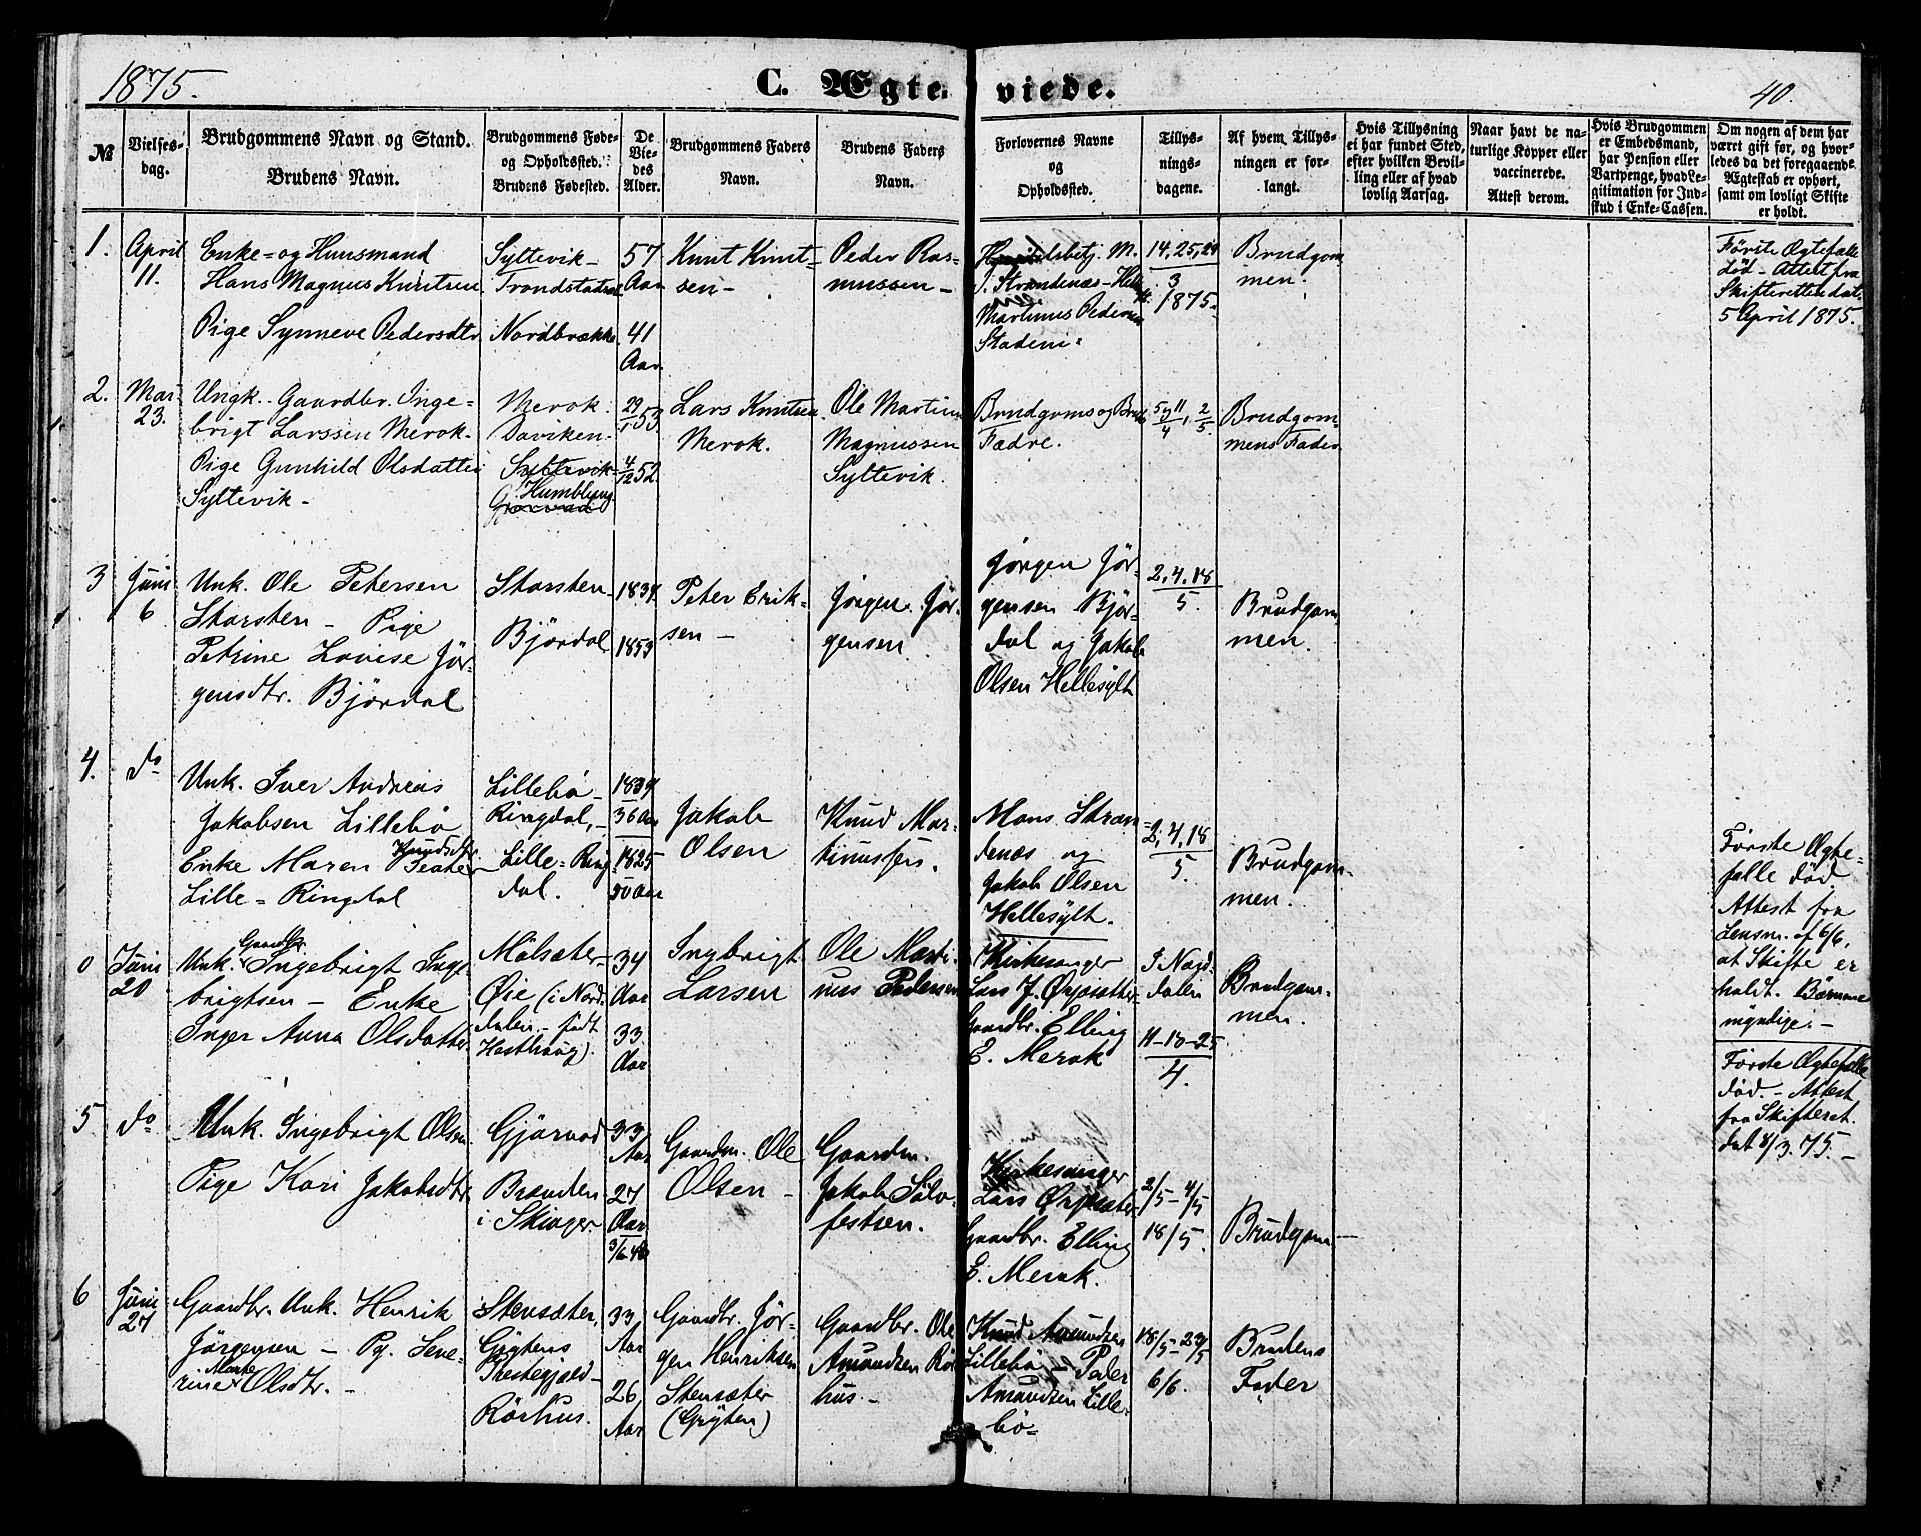 1875.
C. Ægteviede.
40.
№
Vielses-
dag.
Brudgommens Navn og Stand.
Brudens Navn.
Brudgommens Føde-
og Opholdssted.
Brudens Fødested.
De
Vie-
des
Alder.
Brudgommens Faders
Navn.
Brudens Faders
Navn.
Forlovernes Navne
og
Opholdssted.
Tillys-
nings-
dagene.
Af hvem Tillys-
ningen er for-
langt.
Hvis Tillysning
ei har fundet Sted,
efter hvilken Bevil-
ling eller af hvad
lovlig Aarsag.
Naar havt de na-
turlige Kopper eller
vaccinerede.
Attest derom.
Hvis Brudgommen
er Embedsmand,
har Pension eller
Vartpenge, hvad Le-
gitimation for Ind-
skud i Enke-Cassen.
Om nogen af dem har
været gift før, og hvor-
ledes da det foregaaende
Ægteskab er ophørt,
samt om lovligt Skifte
er holdt.
1.
April
11.
Enke- og Huusmand
Hans Magnus Knutsen
Pige Synneve Pedersdtr
Syltevik-
Trondstadsæt
Nordbrække
57
Aar
41
Aar
Knut Knut-
sen-
Peder Ras-
mussen-
M.
J. Strandenæs-Hell
Martinus Pedersen
Stadeni
14, 25, 29
3
1875.
Brudgom
men.
Første Ægtefælle
død - Attest fra
Skifteretten dat.
5 April 1875.
2.
Mai
23.
Ungk. Gaardbr. Inge-
brigt Larssen Merok.
Pige Gunhild Olsdatter
Syltevik-
Merok.
Daviken.
Syltevik
Humblung
29
1 53
4
12 52
Lars Knutsen
Merok.
Ole Martinus
Magnussen
Syltevik.
Brudgoms og Bruds
Fædre.
5 og 11
4
2
5.
Brudgom-
mens Fader.
3
Juni
6
Unk. Ole Petersen
Storsten - Pige
Petrine Lovise Jør-
gensdtr. Bjørdal
Storsten
Bjørdal
1834
1853
Peter Erik-
sen -
Jørgen Jør-
gensen
Jørgen Jør-
gensen Bjør-
dal og Jakob
Olsen Hellesylt
2, 4, 18
5.
Brudgom
men.
4.
do
Unk. Iver Andreas
Jakobsen Lillebø
Enke Maren Knudsdtr
Lille-Ringdal
Lillebø-
Ringdal,-
Lille-Ring
dal.
1839
36 Aar
1825
50 Aar
Jakob
Olsen
Knud Mar-
tinussen.
Mons Stran
denæs og
Jakob Olsen
Hellesylt.
2, 4, 18
5.
Brudgom-
men.
Første Ægte-
fælle død.
Attest fra
Lensm. af 6/6,
at Skifte er
holdt. Børnene
myndige.-
0
Juni
20
Unk. Gaardbr. Ingebrigt Inge-
brigtsen - Enke
Inger Anna Olsdatter
Målsæter-
Øie (i Nord-
dalen - født
Hesthaug).
34
Aar
33.
Aar
Ingbrigt
Larsen
Ole Marti-
nus Pedersen
Kirkesanger
Lars J. Ørjasæther-
Gaardbr. Elling
E. Merok
I Nord-
dalen
11-18-25
4.
Brudgom-
men.
Første Ægtefælle
død.- Attest
fra Skifteret.
dat 8/3 75.-
5
do
Unk. Ingebrigt Olsen
Pige Kari Jakobsdtr
Gjørvad
Brænden
i Skiager
33
Aar
27
Aar
3/6 48
Gaardm. Ole
Olsen -
Gaardm.
Jakob Sølv-
festsen.
Kirkesanger
Lars Ørjasæter
Gaardbr. Elling
E. Merok.
2/5 - 4/5
18/5.
Brudgom-
6
Juni
27
Gaardbr. Unk. Henrik
Jørgensen - Pg. Seve-
rine Marte Olsdtr.-
Stensæter,
Grytens
Præstegjæld-
Rörhus.
33
Aar
26
Aar
Gaardbr. Jør-
gen Henriksen
Stensæter
(Gryten)
Gaardbr. Ole
Amundsen Rör
hus.-
Knud Amundsen
Lillebø - Peder
Amundsen Lille-
bø-
18/5 - 23/5
6/6.
Brudens
Fader